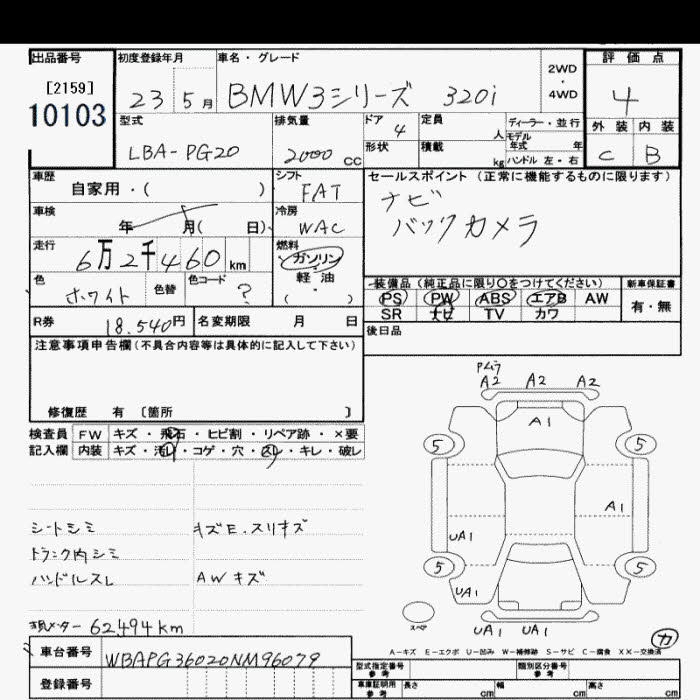 出品番号
[2159]
10103
初度登録年月
23 5月
車名・グレード
BMW3シリーズ 320i
2WD
・
4WD
評価点
4
外装 内装
C B
型式
LBA-PG20
排気量
2000 CC
ドア 4
形状
定員 人
積載 kg
ディーラー・並行
モデル年式 年
ハンドル 左・右
車歴
自家用・( )
車検
年 月( 日)
走行
6万2千460 km
色 ホワイト
色替
色コード ?
シフト
FAT
冷房
WAC
燃料
ガソリン
軽・油
( )
セールスポイント(正常に機能するものに限ります)
ナビ
バックカメラ
装備品(純正品に限り○をつけてください)
PS PW ABS エアB AW
SR ナビ TV カワ
新車保証書
有・無
R券 18.540円
名変期限 月 日
後日品
注意事項申告欄(不具合内容等は具体的に記入して下さい)
修復歴 有 〔箇所 〕
検査員
記入欄
FW キズ・飛石・ヒビ割・リペア跡・×要
内装 キズ・汚レ・コゲ・穴・スレ・キレ・破レ
シートシミ
トランク内シミ
ハンドルスレ
キズE.スリキズ
AWキズ
現メーター 62,494km
A2 A2 A2
A1
5 5
A1
UA1
5 5
UA1
スペア
UA1 UA1
カ
A-キズ E-エクボ U-凹み W-補修跡 S-サビ C-腐食 XX-交換済
車台番号 WBAPG36020NM96079
登録番号
型式指定番号
参考
類別区分番号
参考
車庫証明用
参考
長さ cm
幅 cm
高さ cm